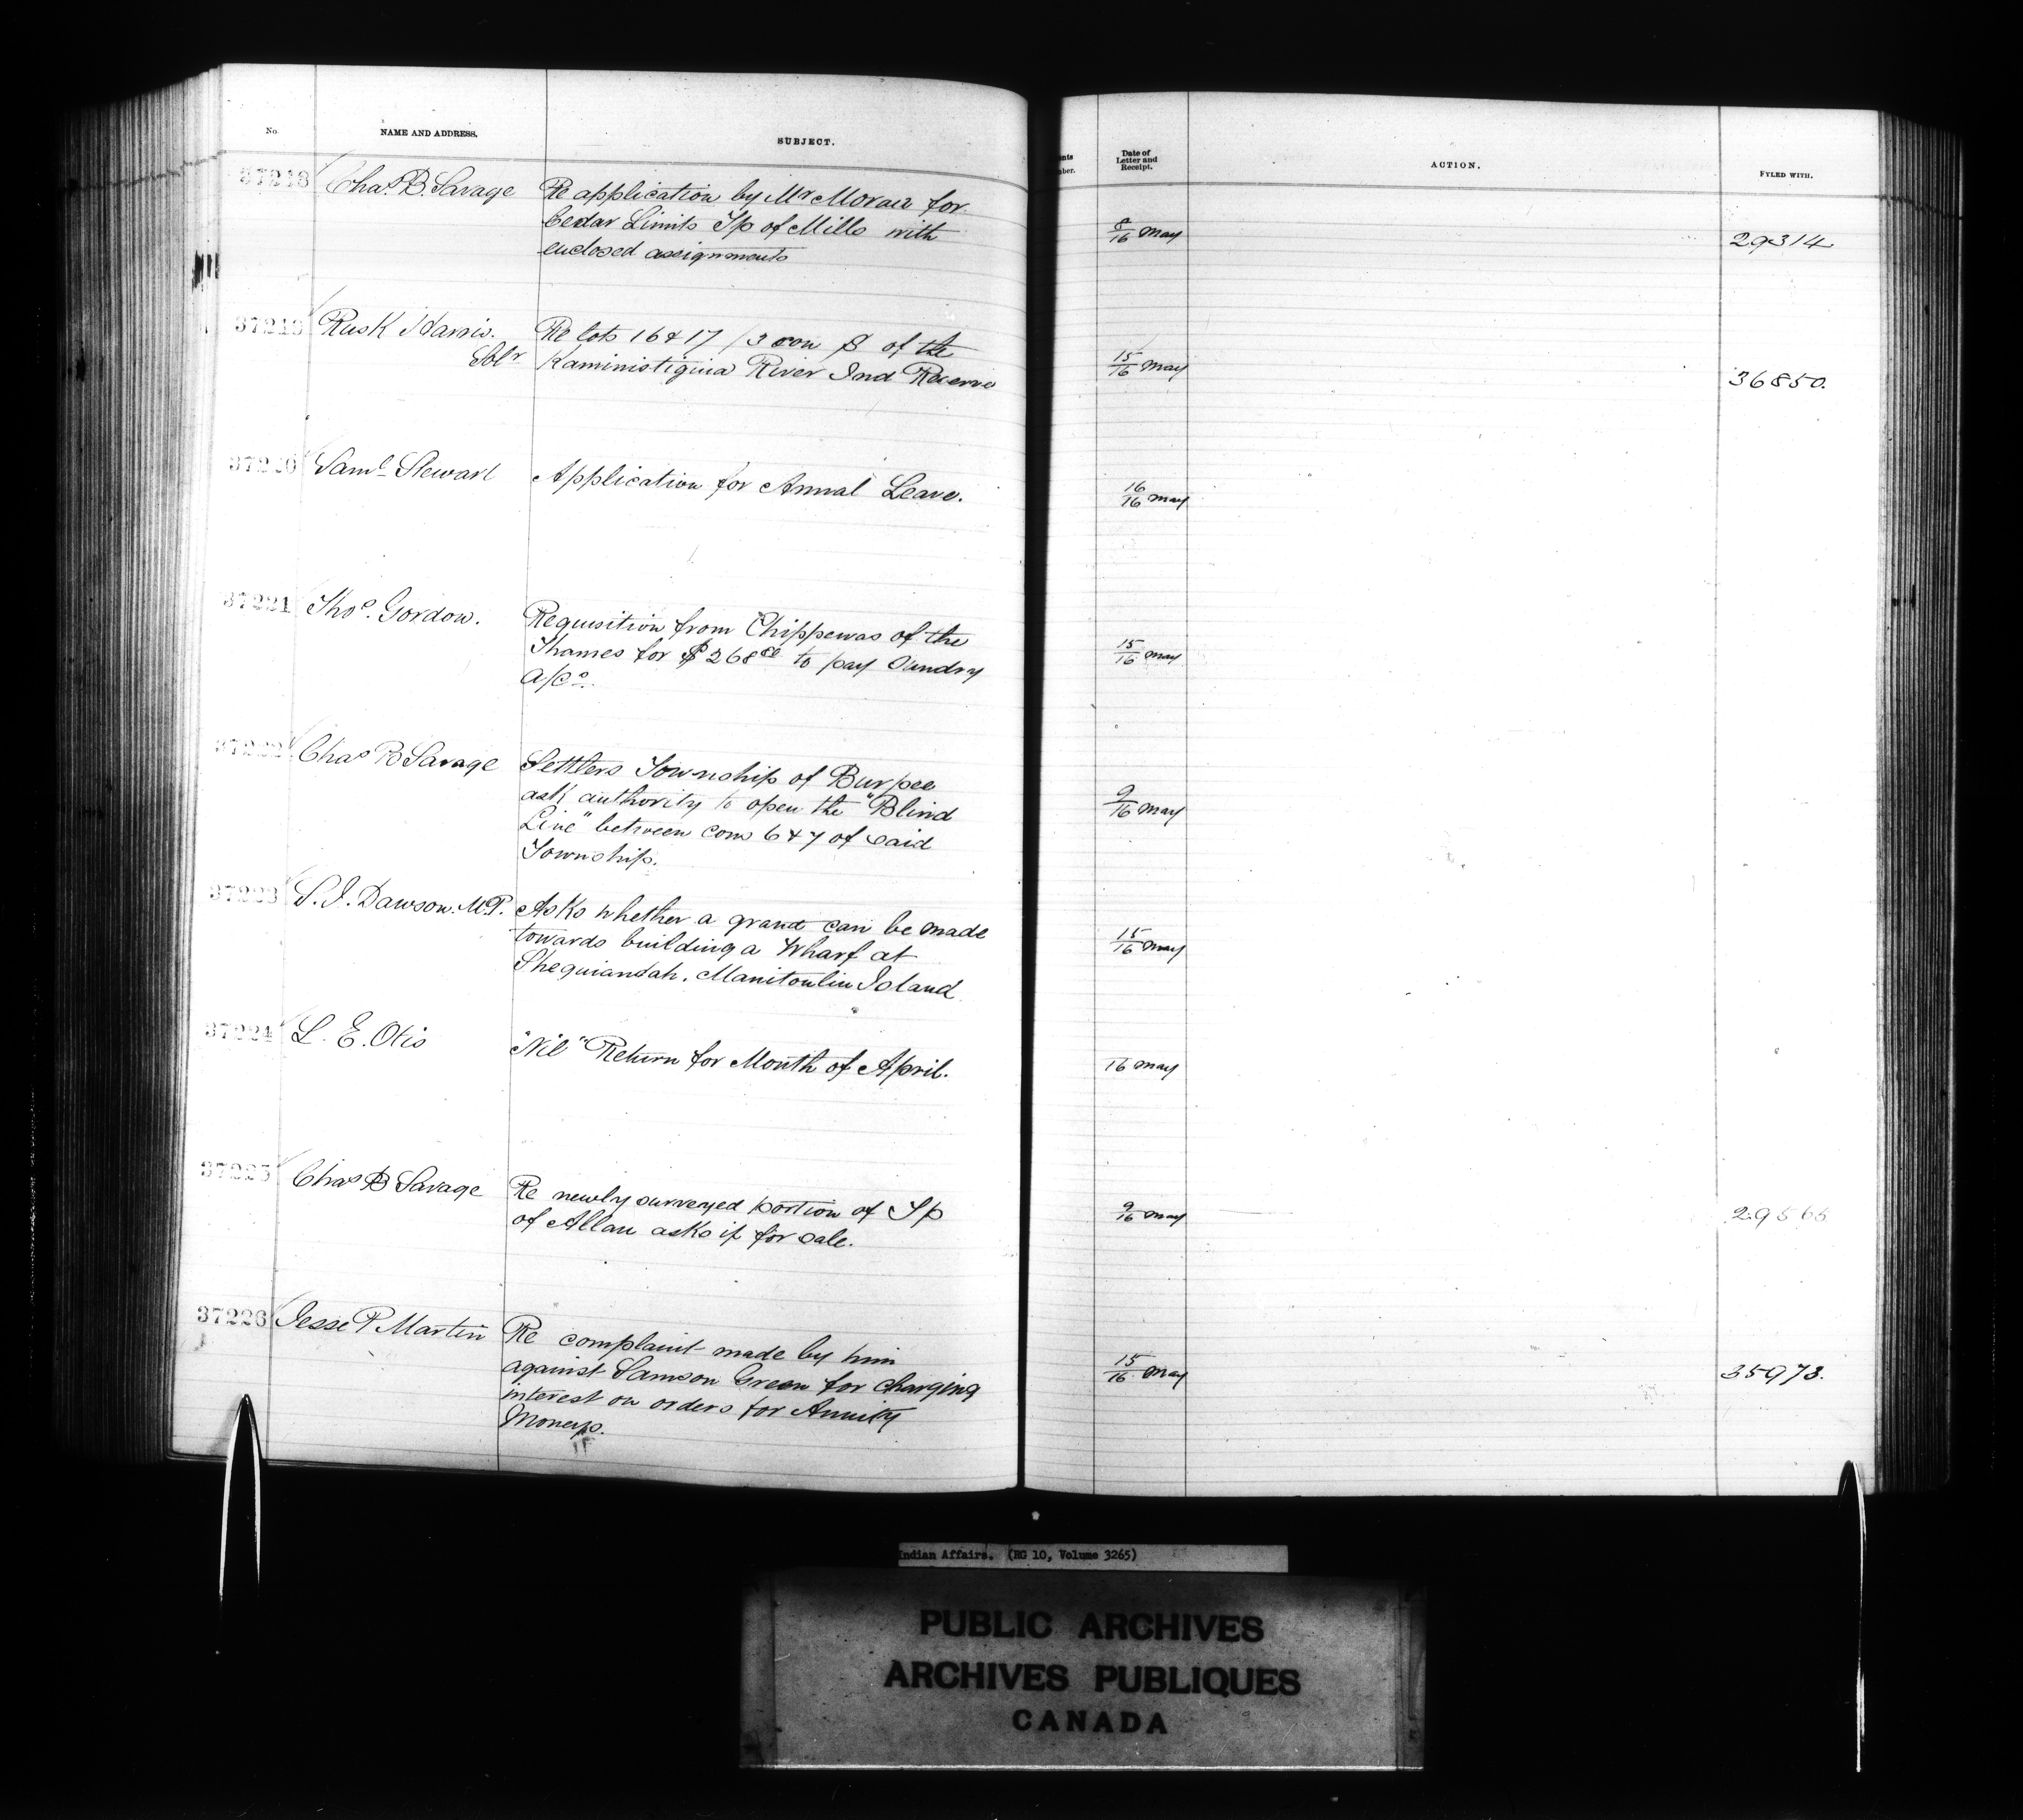 No. NAME AND ADDRESS. SUBJECT.
Date of Letter and Receipt. ACTION. FYLED WITH.
37218 Chas. B. Savage Re application by Mr Moran for
Cedar Limits Tp of Mills with
enclosed assignments
8/16 May 29314
37219 Rusk Harris. Re lots 16 & 17 /3 con S of the
Solr Kaministiquia River Ind Reserve
15/16 May 36850.
37220 Saml Stewart Application for Annual Leave.
16/16 May
37221 Thos. Gordon. Requisition from Chippewas of the
Thames for $268 to pay Sundry
a/cs.
15/16 May
37222 Chas B Savage Settlers Township of Burpee
ask authority to open the "Blind
Line" between Cons 6 & 7 of said
Township.
9/16 May
37223 S. J. Dawson. M.P. Asks whether a grant can be made
towards building a Wharf at
Sheguiandah. Manitoulin Island
15/16 May
37224 L. E. Otis "Nil" Return for Month of April.
16 May
37225 Chas B Savage Re newly surveyed portion of Tp
of Allan asks if for sale.
9/16 May 29565
37226 Jesse P Martin Re complaint made by him
against Samson Green for charging
interest on orders for Annuity
Moneys.
15/16 May 35973.
Indian Affairs. (RG 10, Volume 3265)
PUBLIC ARCHIVES
ARCHIVES PUBLIQUES
CANADA